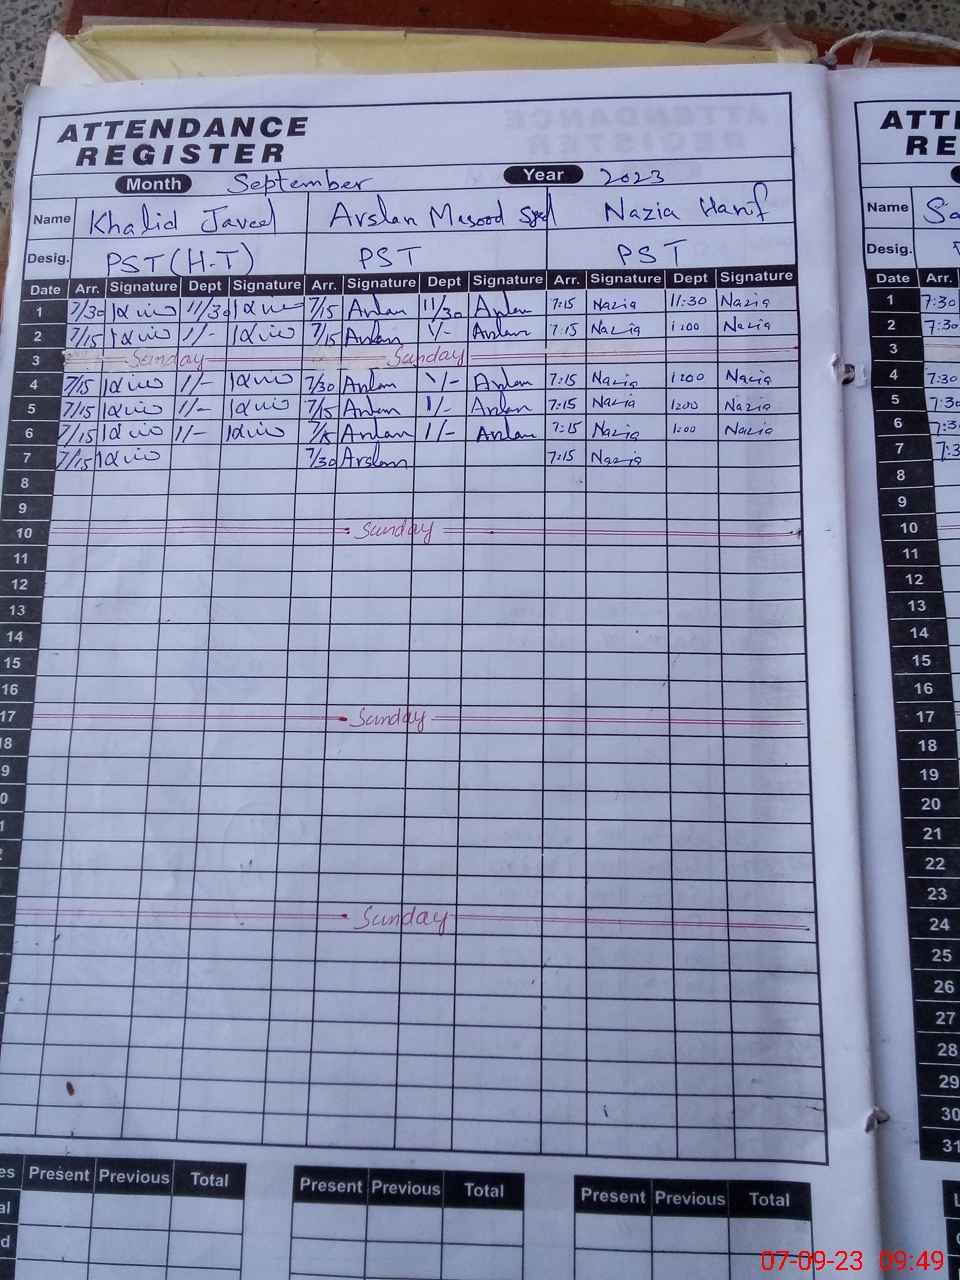 ATTENDANCE
REGISTER
Month September Year 2023
Name Khalid Javeed Arslan Masood Nazia Hanif
Desig. PST (H-T) PST PST
Date Arr. Signature Dept Signature Arr. Signature Dept Signature Arr. Signature Dept Signature
1 7/30 11/30 7/15 Arslan 11/30 Arslan 7:15 Nazia 11:30 Nazia
2 7/15 1/- 7/15 Arslan 1/- Arslan 7:15 Nazia 1:00 Nazia
3 Sunday Sunday
4 7/15 1/- 7/30 Arslan 1/- Arslan 7:15 Nazia 1:00 Nazia
5 7/15 1/- 7/15 Arslan 1/- Arslan 7:15 Nazia 1:00 Nazia
6 7/15 1/- 7/15 Arslan 1/- Arslan 7:15 Nazia 1:00 Nazia
7 7/15 7/30 Arslan 7:15 Nazia
8
9
10 Sunday
11
12
13
14
15
16
17 Sunday
18
9
0
1
2
Sunday
Present Previous Total Present Previous Total Present Previous Total
ATTE
RE
Name Sa
Desig.
Date Arr.
1 7:30
2 7:30
3
4 7:30
5 7:30
6 7:30
7 7:3
8
9
10
11
12
13
14
15
16
17
18
19
20
21
22
23
24
25
26
27
28
29
30
31
07-09-23 09:49